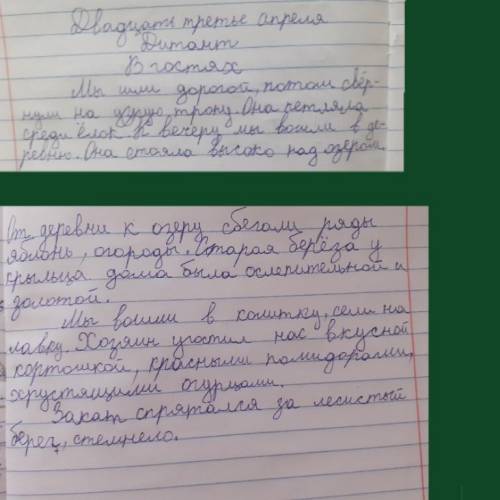 Двадцать третье апреля
Дитант
В гостях
Мы шли дорогой, потом свер-
нули на узкую, тропу. Она петляла
среди ёлок. К вечеру мы вошли в де-
ревню. Она стояла высоко над озером.
От деревни к озеру сбегали ряды
яблонь, огороды. Старая берёза у
крыльца дома была ослепительной и
золотой.
Мы вошли в колитку, сели на
лавку. Хозяин угостил нас вкусной
кортошкой, красными помидорами,
хрустящими огурцами.
Закат спрятался за лесистый
берег, стемнело.